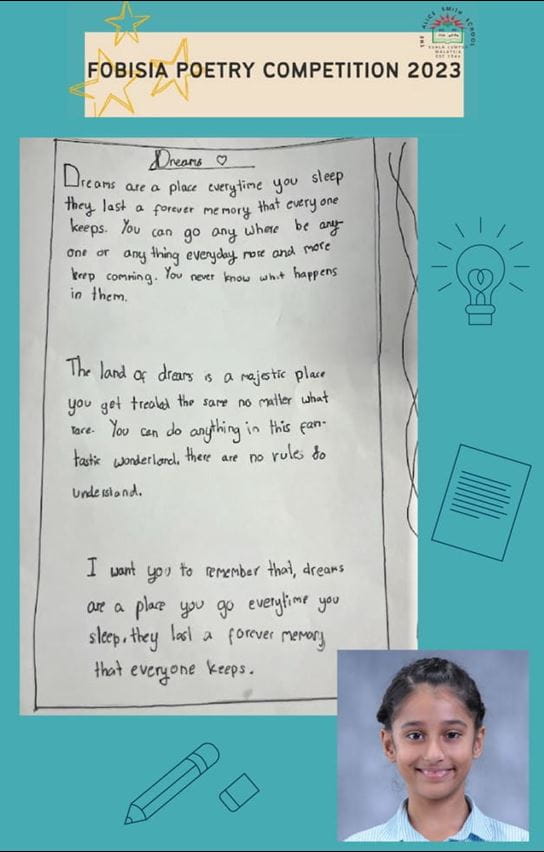 THE ALICE SMITH SCHOOL
KUALA LUMPUR
MALAYSIA
EST 1946
FOBISIA POETRY COMPETITION 2023
Dreams ♡
Dreams are a place everytime you sleep
they last a forever memory that every one
keeps. You can go any where be any-
one or any thing everyday more and more
keep comming. You never know what happens
in them.
The land of dreams is a majestic place
you get treated the same no matter what
race. You can do anything in this fan-
tastic wonderland, there are no rules to
understand.
I want you to remember that, dreams
are a place you go everytime you
sleep, they last a forever memory
that everyone keeps.